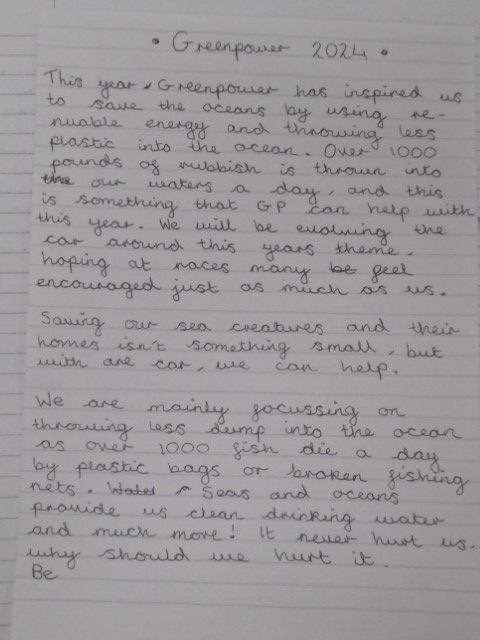 • Greenpower 2024 •
This year Greenpower has inspired us
to save the oceans by using re-
nuable energy and throwing less
plastic into the ocean. Over 1000
pounds of rubbish is thrown into
our waters a day, and this
is something that GP can help with
this year. We will be evolving the
car around this years theme.
hoping at races many be feel
encouraged just as much as us.
Saving our sea creatures and their
homes isn't something small, but
with are car, we can help.
We are mainly focussing on
throwing less dump into the ocean
as over 1000 fish die a day
by plastic bags or broken fishing
nets. Seas and oceans
provide us clean drinking water
and much more! It never hurt us.
why should we hurt it.
Be